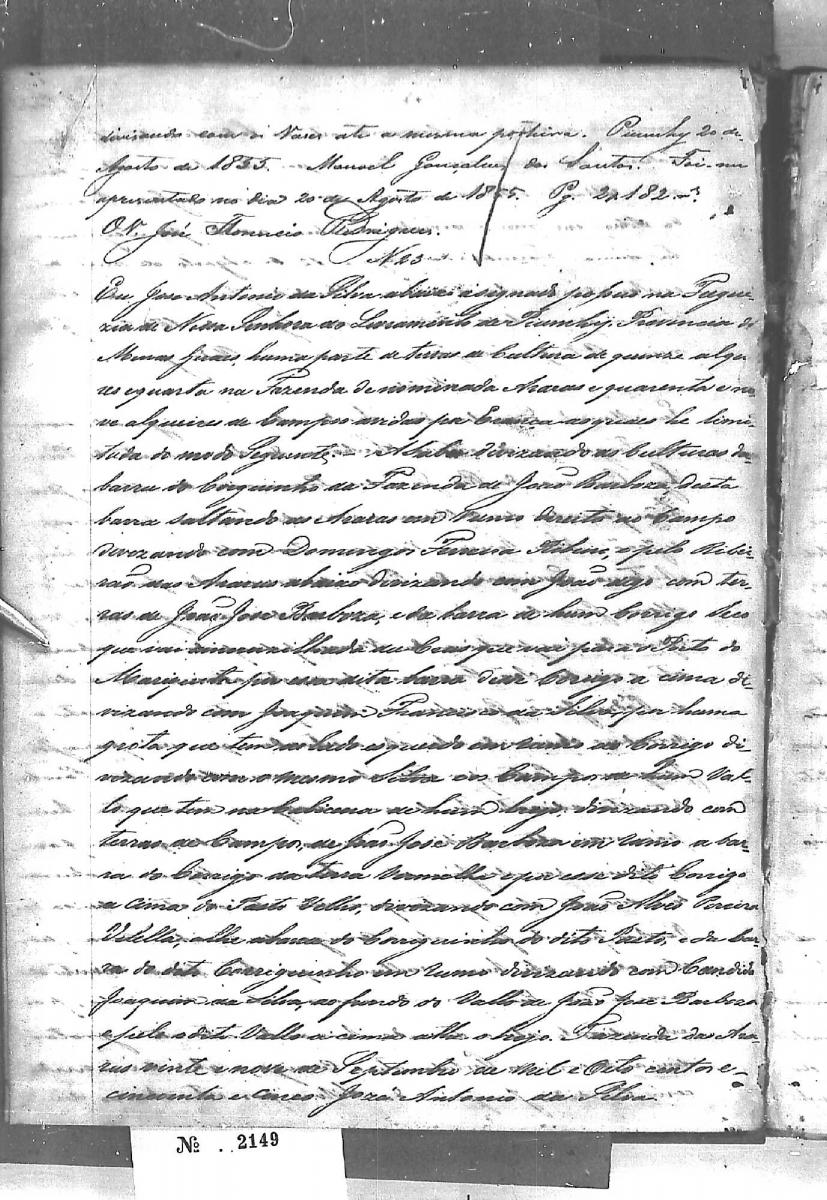 divisando com o Vares até a mesma porteira. Piumhy 20 de
Agosto de 1855. Manoel Gonçalves dos Santos. Foi-me
apresentado no dia 20 de Agosto de 1855. Pg. 2$182 rs.
O V. José Florencio Rodrigues.
N 23
Eu, Jose Antonio da Silva abaixo asignado posuo na Fregue-
zia de Nossa Senhora do Livramento de Piumhy, Provincia de
Minas Geraes, huma parte de terras de Cultura de quinze alquei-
res e quarta na Fazenda denominada Araras e quarenta e no-
ve alqueires de Campos as quaes he limi-
tada do modo Seguinte, A Saber divizando as Culturas da
barra do Corguinho da Fazenda de João Barboza, desta
barra saltando as Araras em rumo direito ao Campo
divizando com Domingos Ferreira Ribeiro, e pelo Ribei-
rão das Araras abaixo divizando com João digo com ter-
ras de João Jose Barboza, e da barra de hum Corrigo Seco
que vai que vai para o Porto do
por essa dita barra deste Corrigo a cima di-
vizando com Joaquim Francisco da Silva, por huma
grota que tem ao lado esquerdo em rumo ao Corrigo di-
vizando com o mesmo Silva em Campos de hum Val-
lo que tem na Cabiceira de hum brejo, divizando com
terras de Campos, de João Jose Barboza em rumo a bar-
ra do Corrigo da terra Vermelha e por esse dito Corrigo
a cima do Pasto Velho, divizando com João Alves Pereira
Vilella, athe a barra do Corriguinho do dito Pasto, e da bar-
ra do dito Corriguinho em rumo divizando com Candido
Joaquim da Silva, ao fundo do Vallo de João Jose Barboza
e pelo dito Vallo a cima athe o brejo. Fazenda das Ara-
ras vinte e nove de Septembro de mil e Oito centos e
cincoenta e cinco José Antonio da Silva
Nº 2149